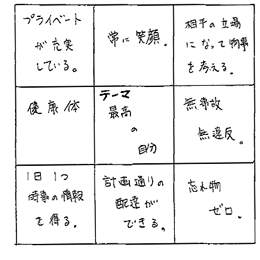 プライベート
が充実
している。
常に笑顔。
相手の立場
になって物事
を考える。
健康体
テーマ
最高
の
自分
無事故
無違反。
1日1つ
時事の情報
を得る。
計画通りの
配達が
できる。
忘れ物
ゼロ。